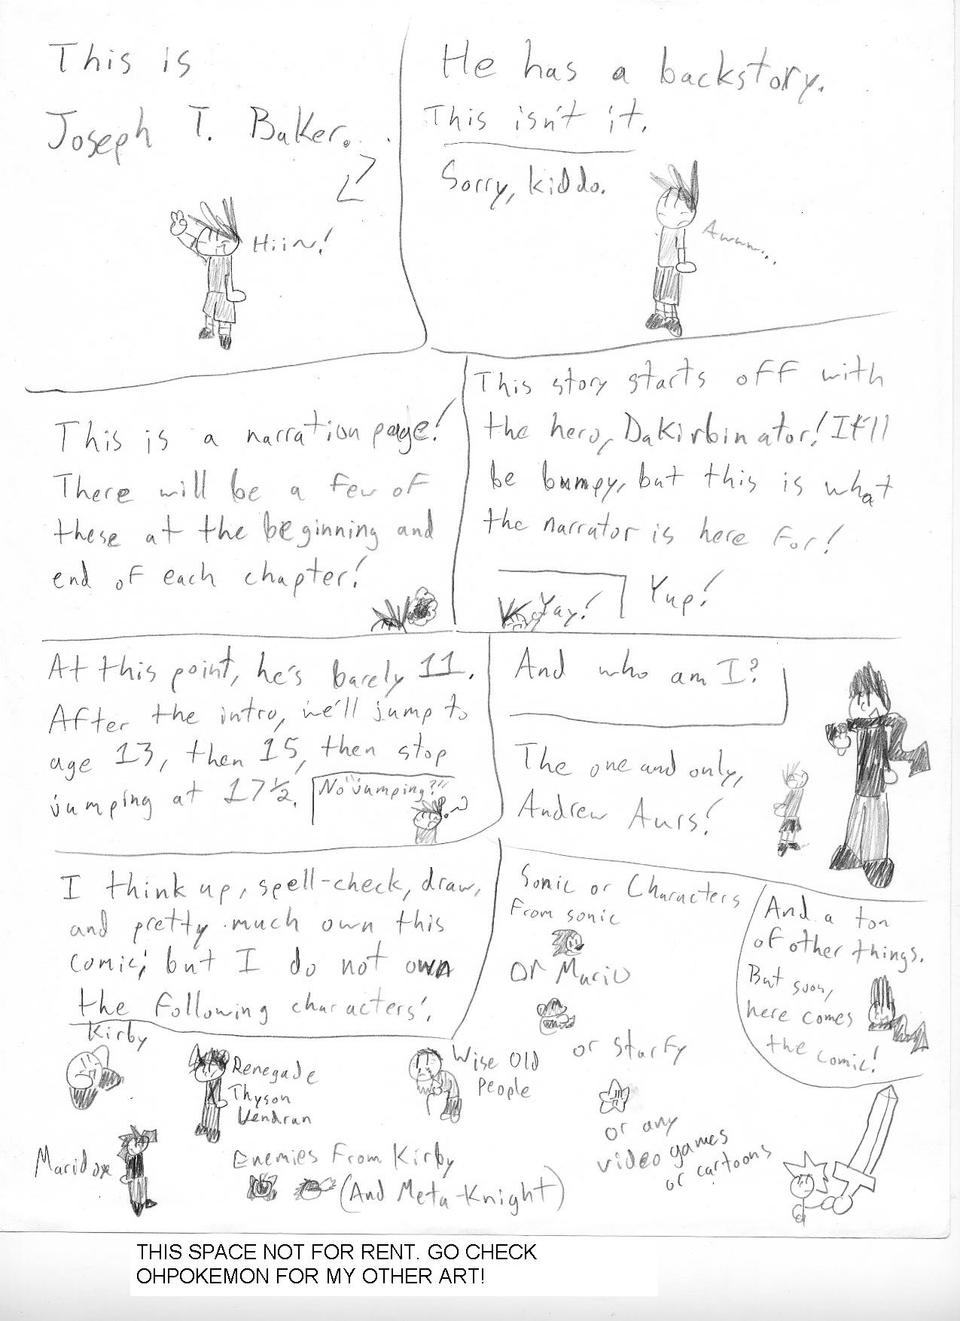 This is
Joseph T. Baker.
Hiin~!
He has a backstory.
This isn't it.
Sorry, kiddo.
Awww...
This is a narration page!
There will be a few of
these at the beginning and
end of each chapter!
This story starts off with
the hero, DaKirbinator! It'll
be bumpy, but this is what
the narrator is here for!
Yay!
Yup!
At this point, he's barely 11.
After the intro, we'll jump to
age 13, then 15, then stop
jumping at 17½.
No "jumping?"
And who am I?
The one and only,
Andrew Aurs!
I think up, spell-check, draw,
and pretty much own this
comic; but I do not own
the following characters:
Kirby
Renegade
Thyson
Vendran
Wise Old
People
Maridox
Enemies From Kirby
(And Meta-Knight)
Sonic or Characters
From sonic
Or Mario
or Starfy
or any
video games
or cartoons
And a ton
of other things.
But soon,
here comes
the comic!
THIS SPACE NOT FOR RENT. GO CHECK
OHPOKEMON FOR MY OTHER ART!